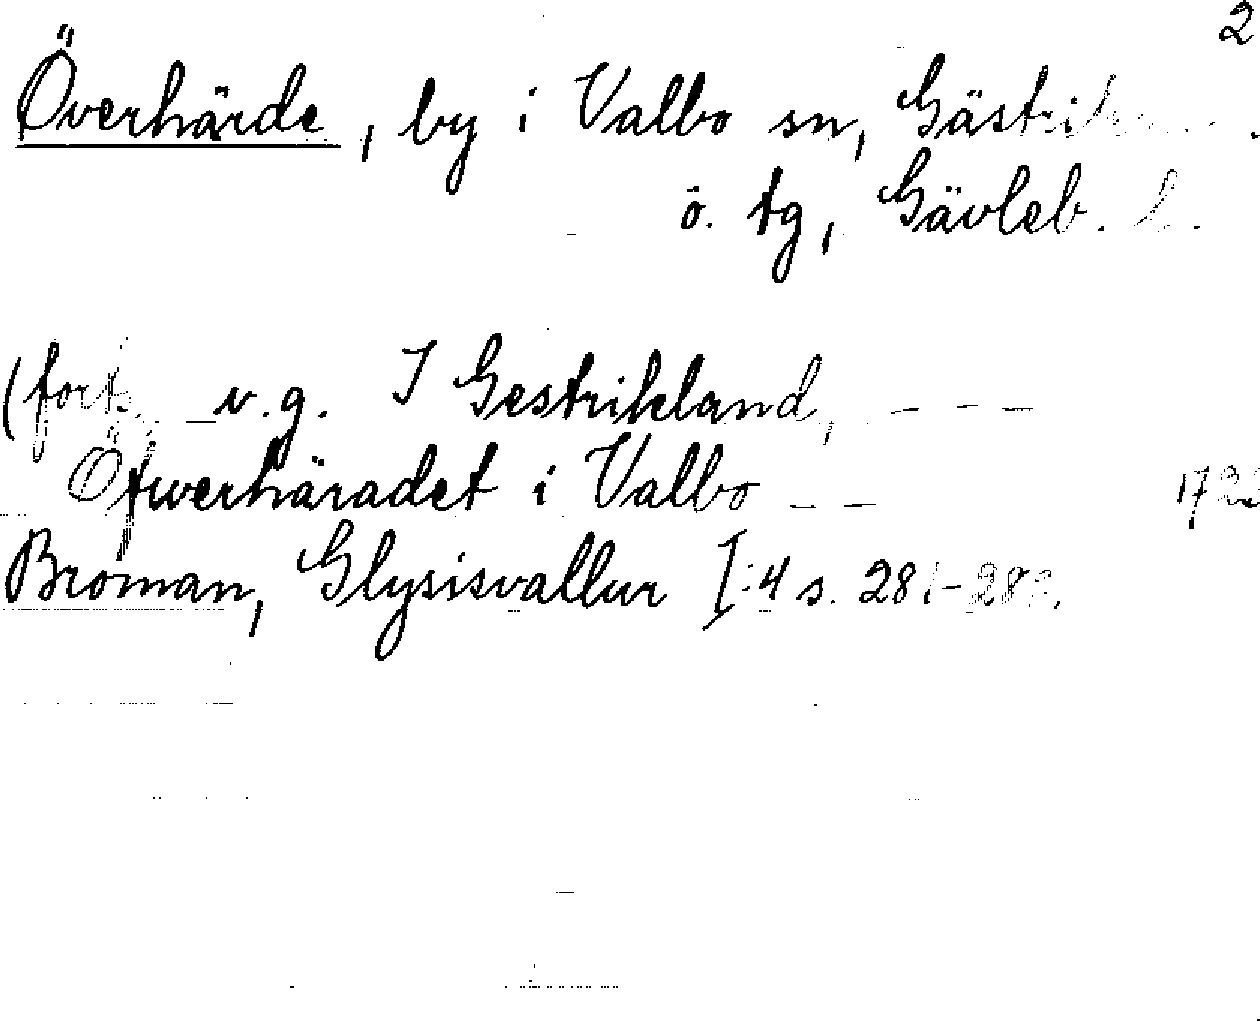 2
Överhärde, by i Valbo sn,
ö. tg, Gävleb. l.
(forts. v.g. I Gestrikland, - - -
Öfwerhäradet i Valbo - -
Broman, Glysisvallur I:4 s.